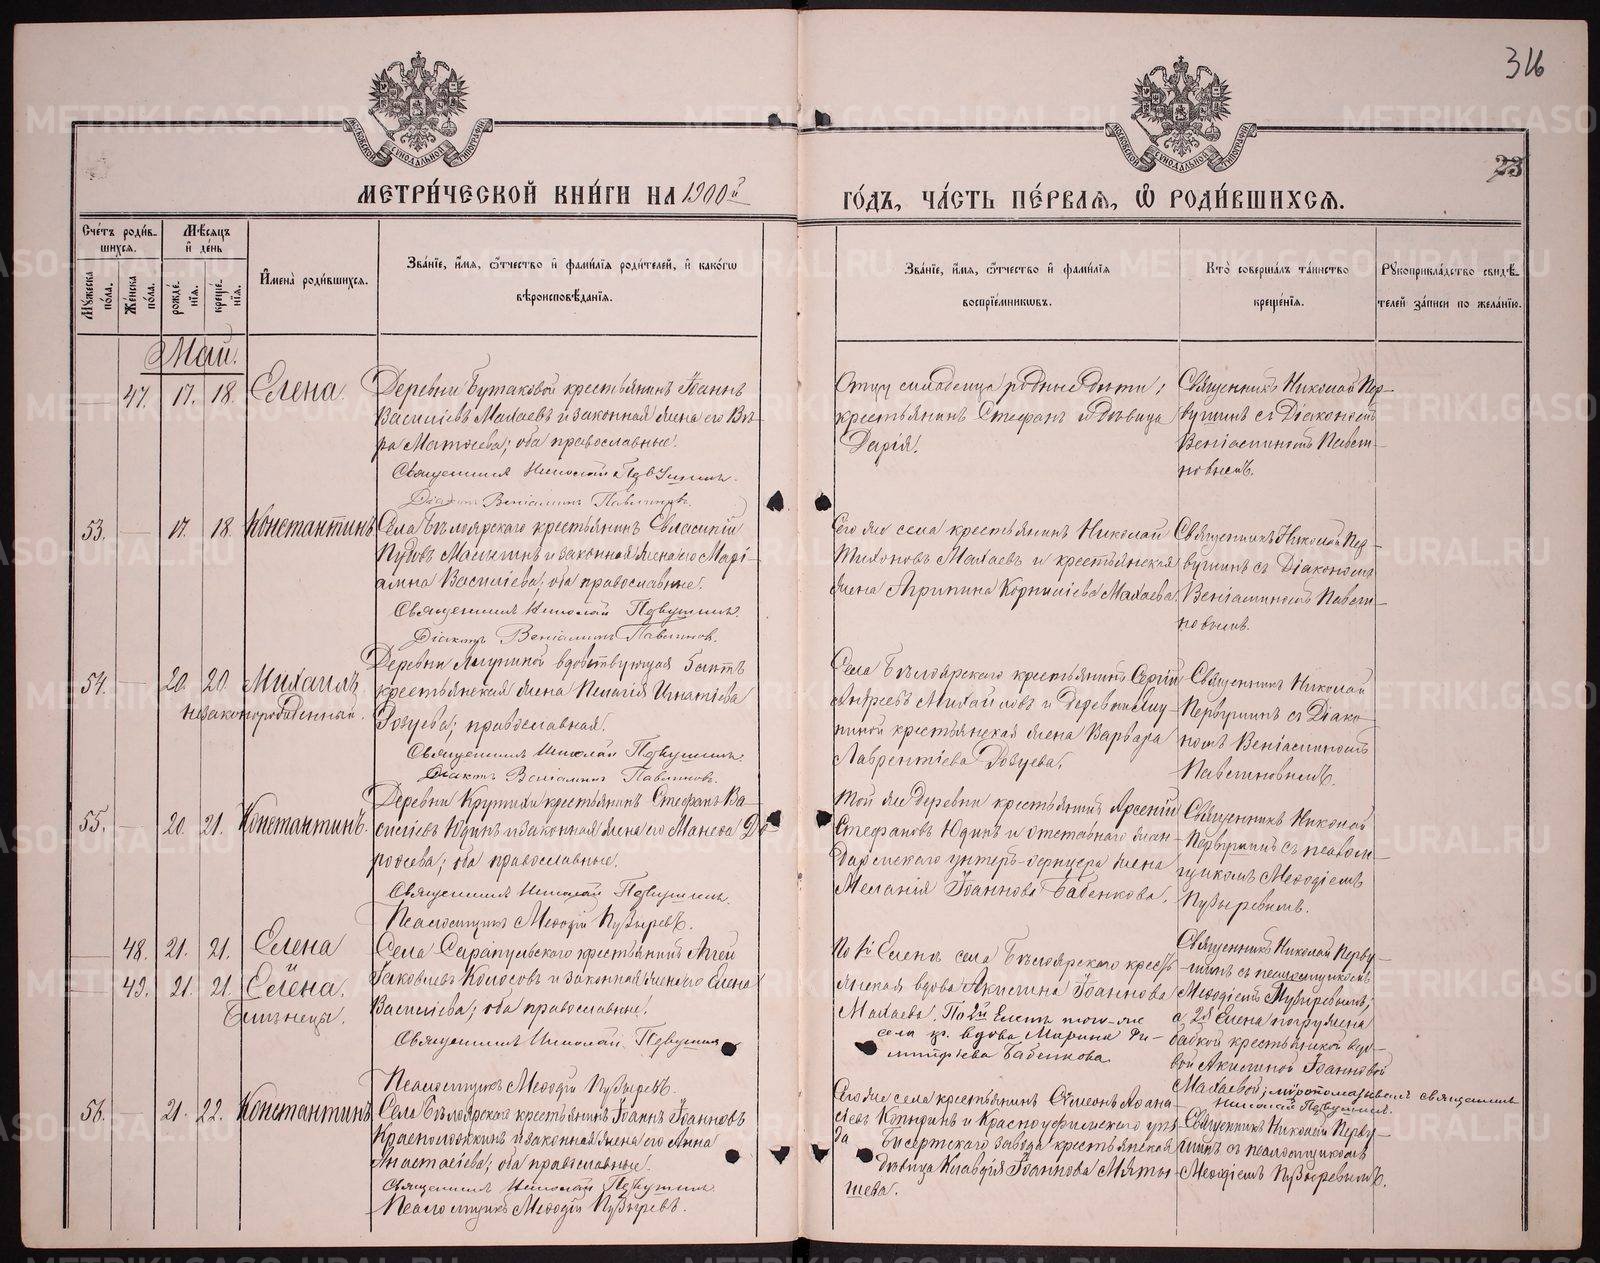 316
23
МЕТРИ́ЧЕСКОЙ КНИ́ГИ НА 1900й
ГО́ДЪ, ЧА́СТЬ ПЕ́РВАѦ, Ѡ҆ РОДИ́ВШИХСѦ.
Сче́тъ роди́в-
шихсѧ.
Мѣ́сѧцъ
и҆ де́нь
Мꙋ́жеска по́ла.
Же́нска по́ла.
рожде́нїѧ.
креще́нїѧ.
И҆мена̀ роди́вшихсѧ.
Зва́нїе, и҆́мѧ, ѻ҆́тчество и҆ фами́лїѧ роди́телей, и҆ како́гѡ
вѣроисповѣ́данїѧ.
Зва́нїе, и҆́мѧ, ѻ҆́тчество и҆ фами́лїѧ
воспрїе́мникѡвъ.
Кто̀ соверша́лъ та́инство
креще́нїѧ.
Рꙋкоприкла́дство свидѣ́-
телей за́писи по жела́нїю.
Май.
47. 17. 18. Елена.
Деревни Бутаковой крестьянинъ Іоаннъ
Васильевъ Малаевъ и законная жена его Вѣ-
ра Матѳеева; оба православные.
Священникъ Николай Первушинъ.
Діаконъ Веніаминъ Павлиновъ.
Отцу младенца родные дѣти,
крестьянинъ Стефанъ и дѣвица
Дарія.
Священникъ Николай Пер-
вушинъ съ Діакономъ
Веніаминомъ Павли-
новымъ.
53. 17. 18. Константинъ
Села Бѣлоярскаго крестьянинъ
и законная жена его Марі-
анна Васильева; оба православные.
Священникъ Николай Первушинъ.
Діаконъ Веніаминъ Павлиновъ.
Того же села крестьянинъ Николай
Тихоновъ Малаевъ и крестьянская
жена Агрипина Корниліева Малаева.
Священникъ Николай Пер-
вушинъ съ Діакономъ
Веніаминомъ Павли-
новымъ.
54. 20. 20. Михаилъ
незаконорожденный.
Деревни вдовствующая
крестьянская жена Пелагія Игнатіева
Зовуева; православная.
Священникъ Николай Первушинъ.
Діаконъ Веніаминъ Павлиновъ.
Села Бѣлоярскаго крестьянинъ Сергій
Андреевъ Михайловъ и деревни
крестьянская жена Варвара
Лаврентіева Зовуева.
Священникъ Николай
Первушинъ съ Діако-
номъ Веніаминомъ
Павлиновымъ.
55. 20. 21. Константинъ.
Деревни Крутихи крестьянинъ Стефанъ Ва-
сильевъ Юдинъ и законная жена его Манева До-
роѳеева; оба православные.
Священникъ Николай Первушинъ.
Псаломщикъ Меѳодій Пузыревъ.
Той же деревни крестьянинъ Арсеній
Стефановъ Юдинъ и отставнаго жан-
дармскаго унтеръ-офицера жена
Меланія Іоаннова Бабенкова.
Священникъ Николай
Первушинъ съ псалом-
щикомъ Меѳодіемъ
Пузыревымъ.
48. 21. 21. Елена
49. 21. 21. Елена.
Близнецы.
Села Сарапульскаго крестьянинъ Аггей
Іаковлевъ Колосовъ и законная жена его Елена
Васильева; оба православные.
Священникъ Николай Первушинъ
Псаломщикъ Меѳодій Пузыревъ.
По 1й Еленѣ села Бѣлоярскаго кресть-
янская вдова Акилина Іоаннова
Малаева. По 2й Еленѣ того-же
села кр. вдова Марина
Бабенкова.
Священникъ Николай Перву-
шинъ съ псаломщикомъ
Меѳодіемъ Пузыревымъ,
а 2я Елена погружена
бабкой крестьянкой вдо-
вой Акилиной Іоанновой
Малаевой; мѵропомазывалъ священникъ
Николай Первушинъ.
56. 21. 22. Константинъ
Села Бѣлоярскаго крестьянинъ Іоаннъ Іоанновъ
и законная жена его Анна
Анастасіева; оба православные.
Священникъ Николай Первушинъ.
Псаломщикъ Меѳодій Пузыревъ.
Того же села крестьянинъ Симеонъ Аѳана-
сьевъ и Красноуфимскаго уѣз-
да Бисертскаго завода крестьянская
дѣвица Клавдія Іоаннова Мяты-
шева.
Священникъ Николай Перву-
шинъ съ псаломщикомъ
Меѳодіемъ Пузыревымъ.
METRIKI.GASO-URAL.RU